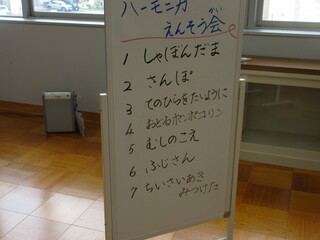 ハーモニカ
えんそう会
かい
1 しゃぼんだま
2 さんぽ
3 てのひらをたいように
4 おどるポンポコリン
5 むしのこえ
6 ふじさん
7 ちいさいあき
みつけた